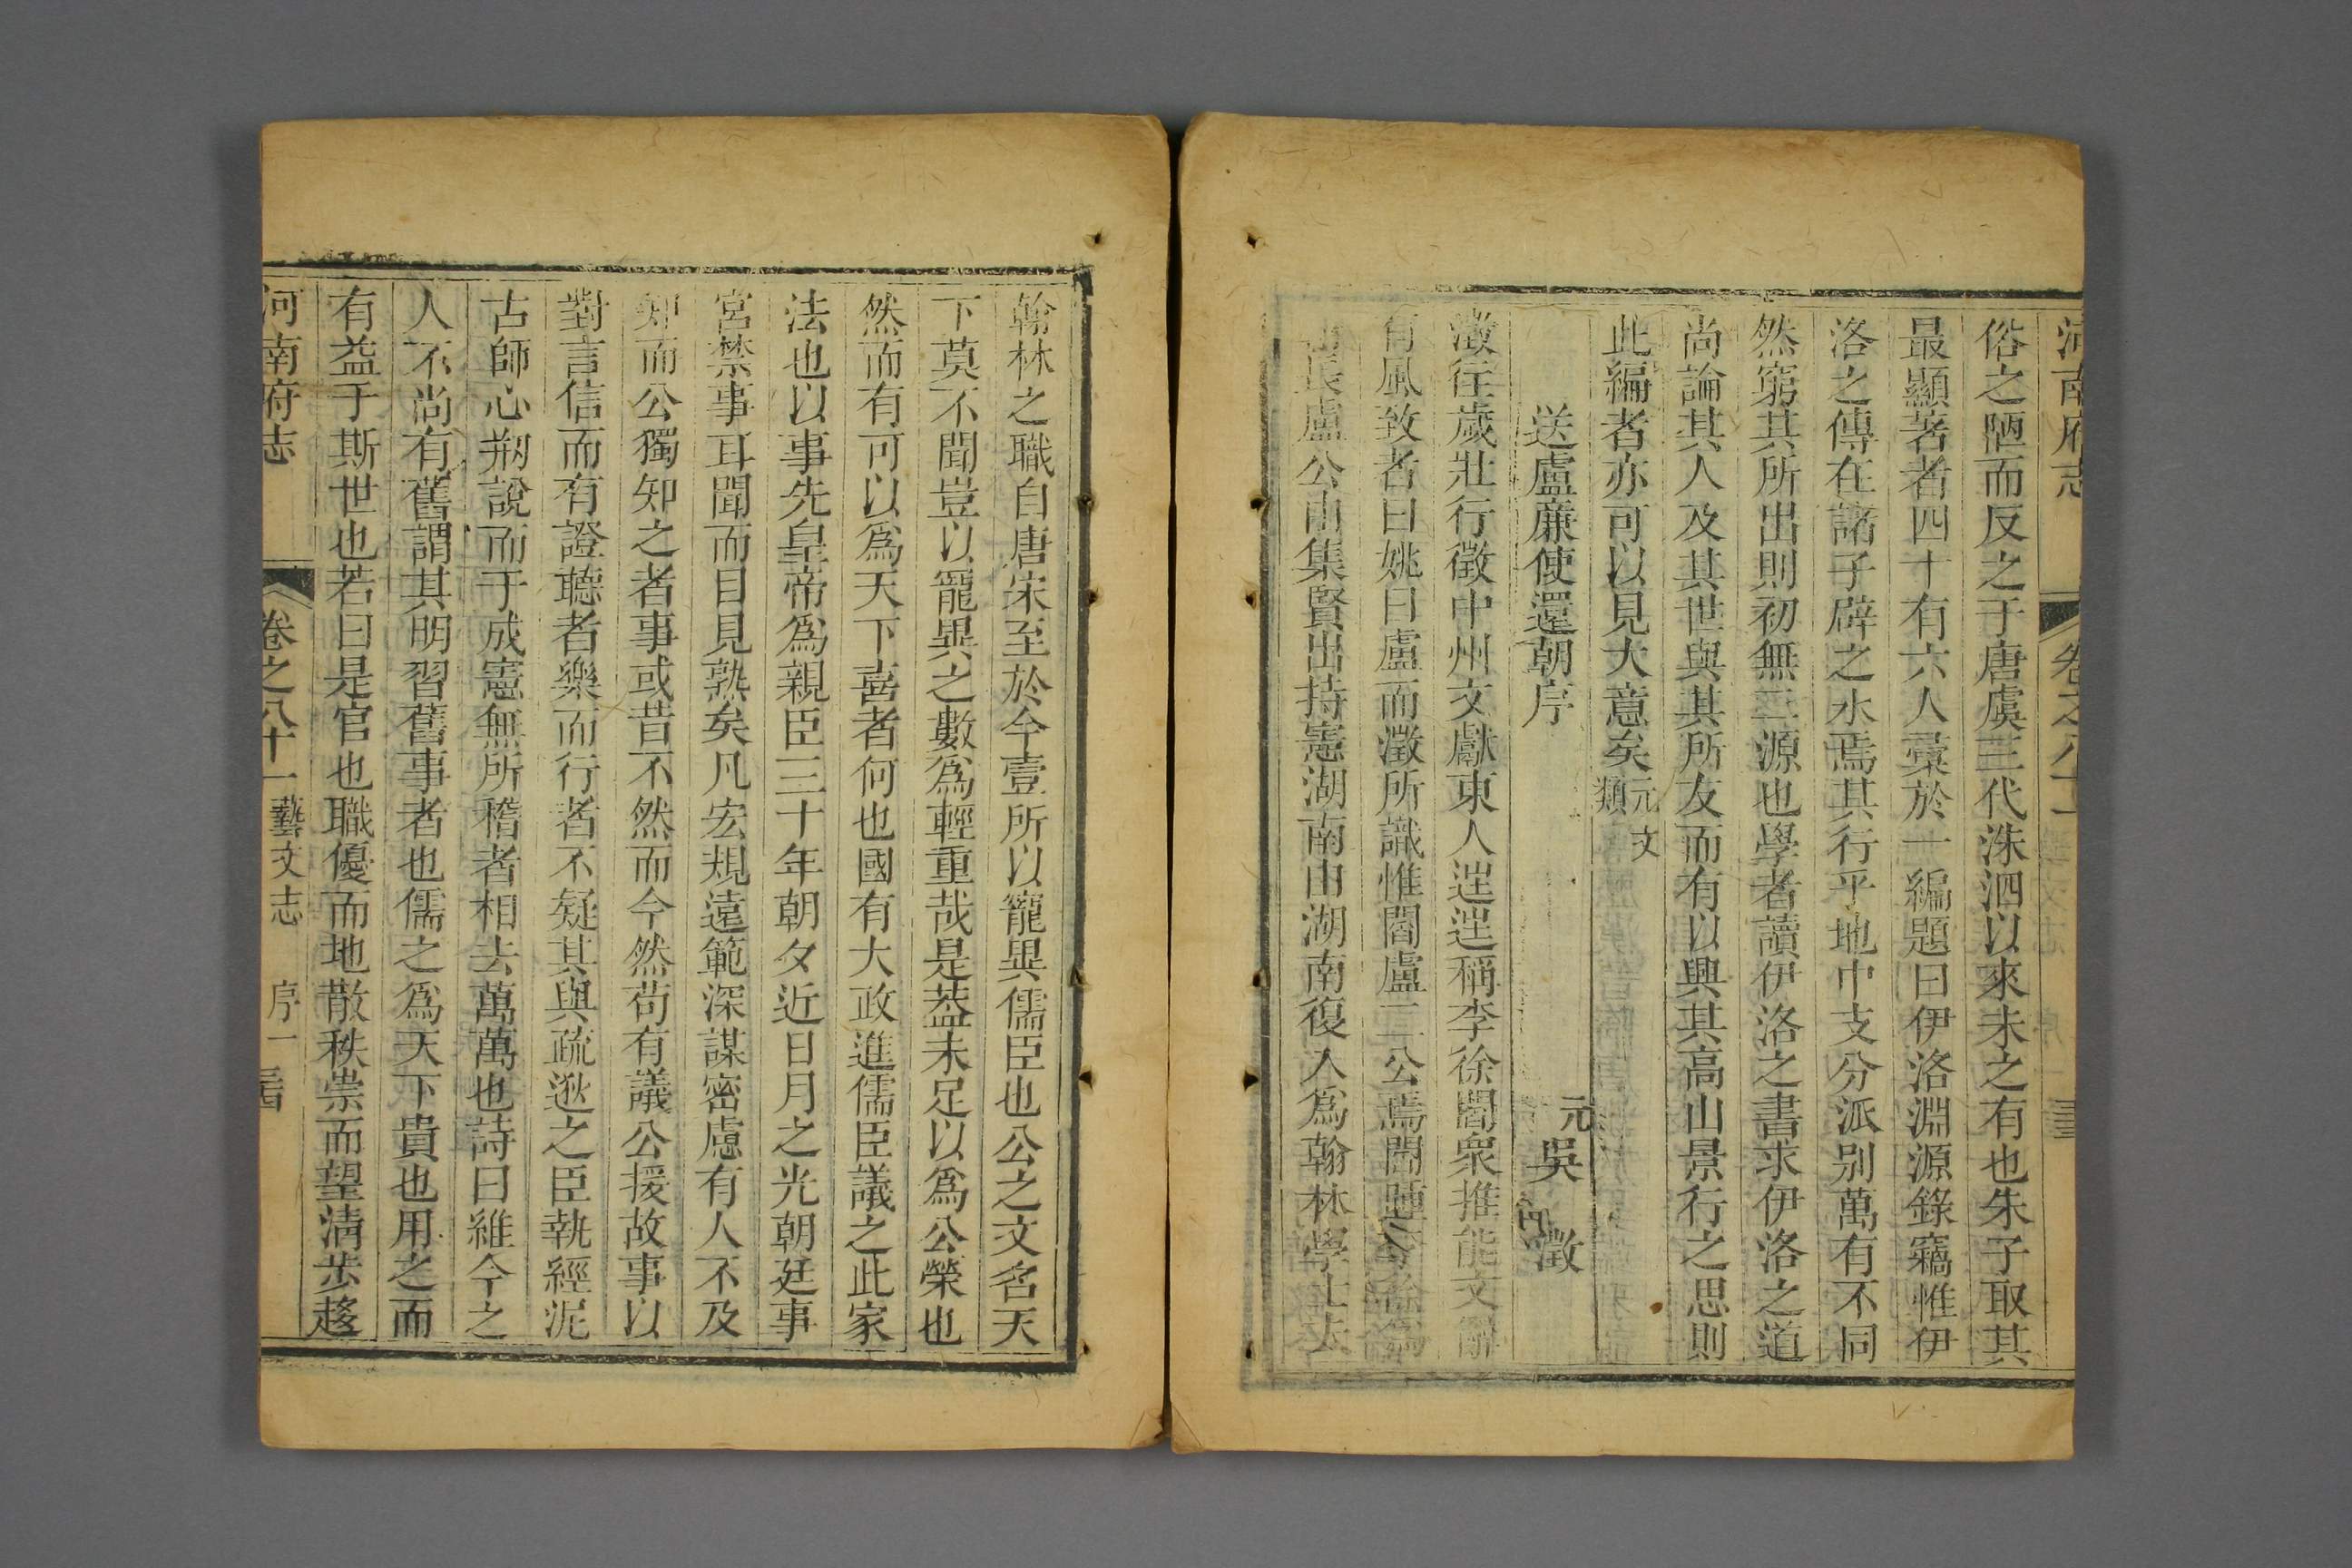 河南府志 卷之八十一
俗之陋而反之于唐虞三代洙泗以來未之有也朱子取其
最顯著者四十有六人彙於一編題曰伊洛淵源錄竊惟伊
洛之傳在諸子辟之水焉其行乎地中支分派别萬有不同
然窮其所出則初無二源也學者讀伊洛之書求伊洛之道
尚論其人及其世與其所友而有以興其高山景行之思則
此編者亦可以見大意矣元文類
送盧廉使還朝序 元吳澂
澂往歲壯行徵中州文獻東人逞逞稱李徐閻衆推能文辭
有風致者曰姚曰盧而澂所識惟閻盧二公焉閻踵李徐爲
長盧公由集賢出持憲湖南由湖南復入爲翰林學士夫
翰林之職自唐宋至於今壹所以寵異儒臣也公之文名天
下莫不聞豈以寵異之數爲輕重哉是葢未足以爲公榮也
然而有可以爲天下喜者何也國有大政進儒臣議之此家
法也公以事先皇帝爲親臣三十年朝夕近日月之光朝廷事
宮禁事耳聞而目見熟矣凡宏規遠範深謀密慮有人不及
知而公獨知之者事或昔不然而今然苟有議公援故事以
對言信而有證聽者樂而行者不疑其與疏逖之臣執經泥
古師心剏說而于成憲無所稽者相去萬萬也詩曰維今之
人不尚有舊謂其明習舊事者也儒之爲天下貴也用之而
有益于斯世也若曰是官也職優而地散秩崇而望清步趍
河南府志 卷之八十一 藝文志 序一 三四